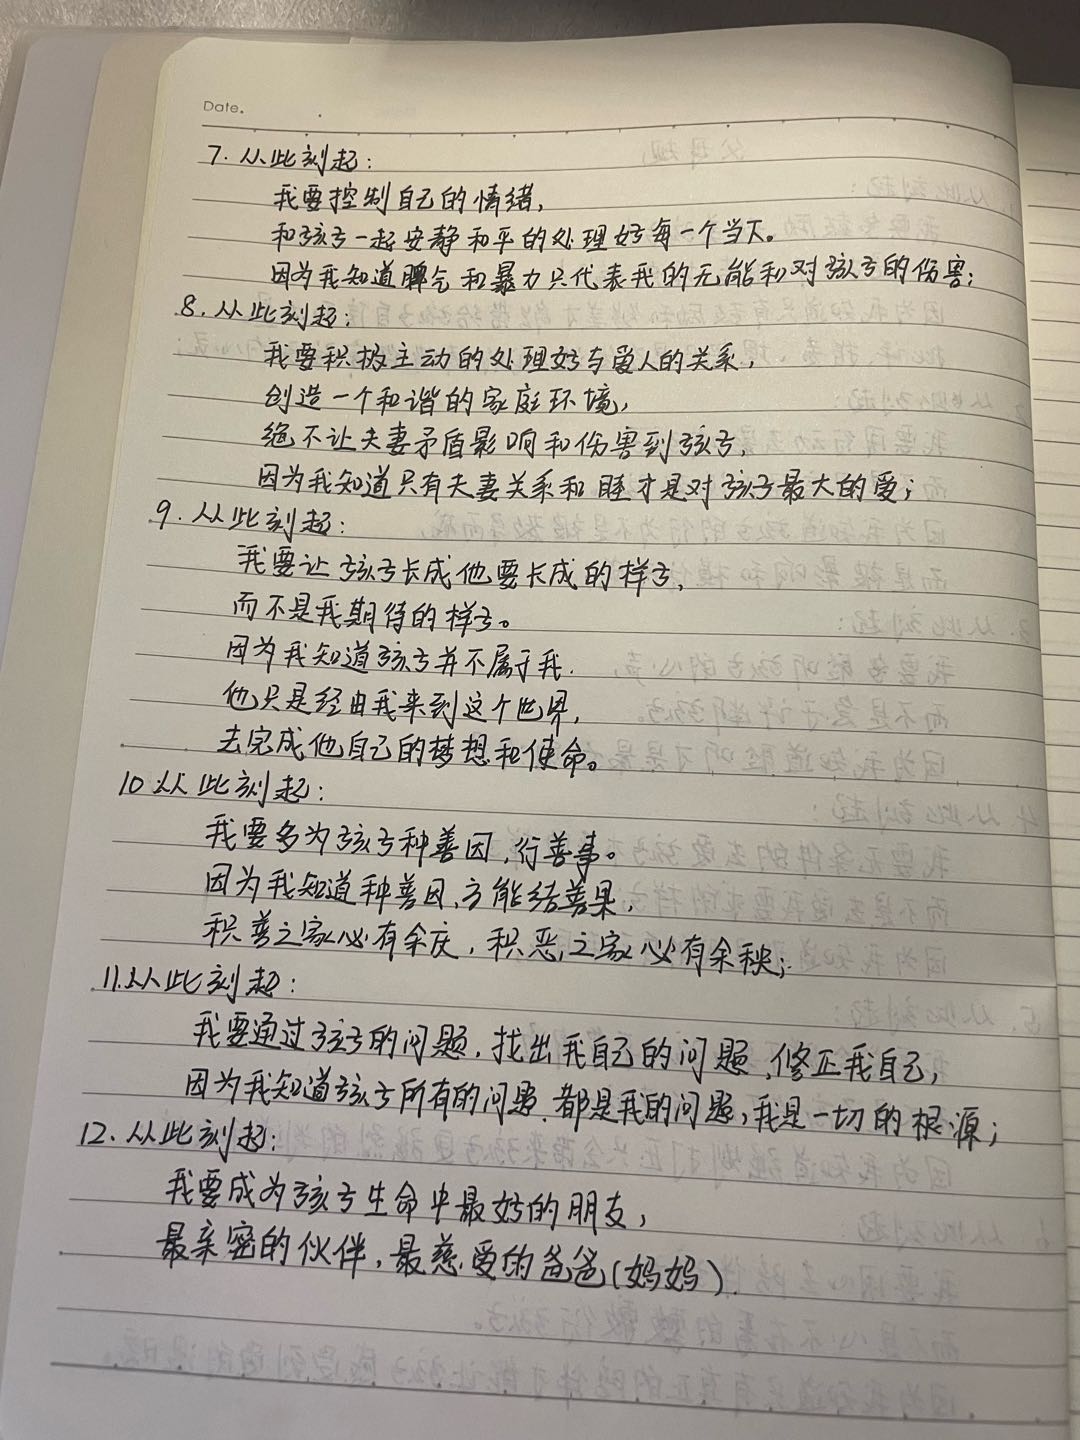 Date.
7. 从此刻起：
我要控制自己的情绪，
和孩子一起安静和平的处理好每一个当下。
因为我知道脾气和暴力只代表我的无能和对孩子的伤害；
8. 从此刻起：
我要积极主动的处理好与爱人的关系，
创造一个和谐的家庭环境，
绝不让夫妻矛盾影响和伤害到孩子，
因为我知道只有夫妻关系和睦才是对孩子最大的爱；
9. 从此刻起：
我要让孩子长成他要长成的样子，
而不是我期待的样子。
因为我知道孩子并不属于我．
他只是经由我来到这个世界，
去完成他自己的梦想和使命。
10 从此刻起：
我要多为孩子种善因，行善事。
因为我知道种善因，方能结善果，
积善之家必有余庆，积恶之家必有余秧；
11.从此刻起：
我要通过孩子的问题，找出我自己的问题，修正我自己，
因为我知道孩子所有的问题，都是我的问题，我是一切的根源；
12. 从此刻起：
我要成为孩子生命中最好的朋友，
最亲密的伙伴，最慈爱的爸爸(妈妈)．